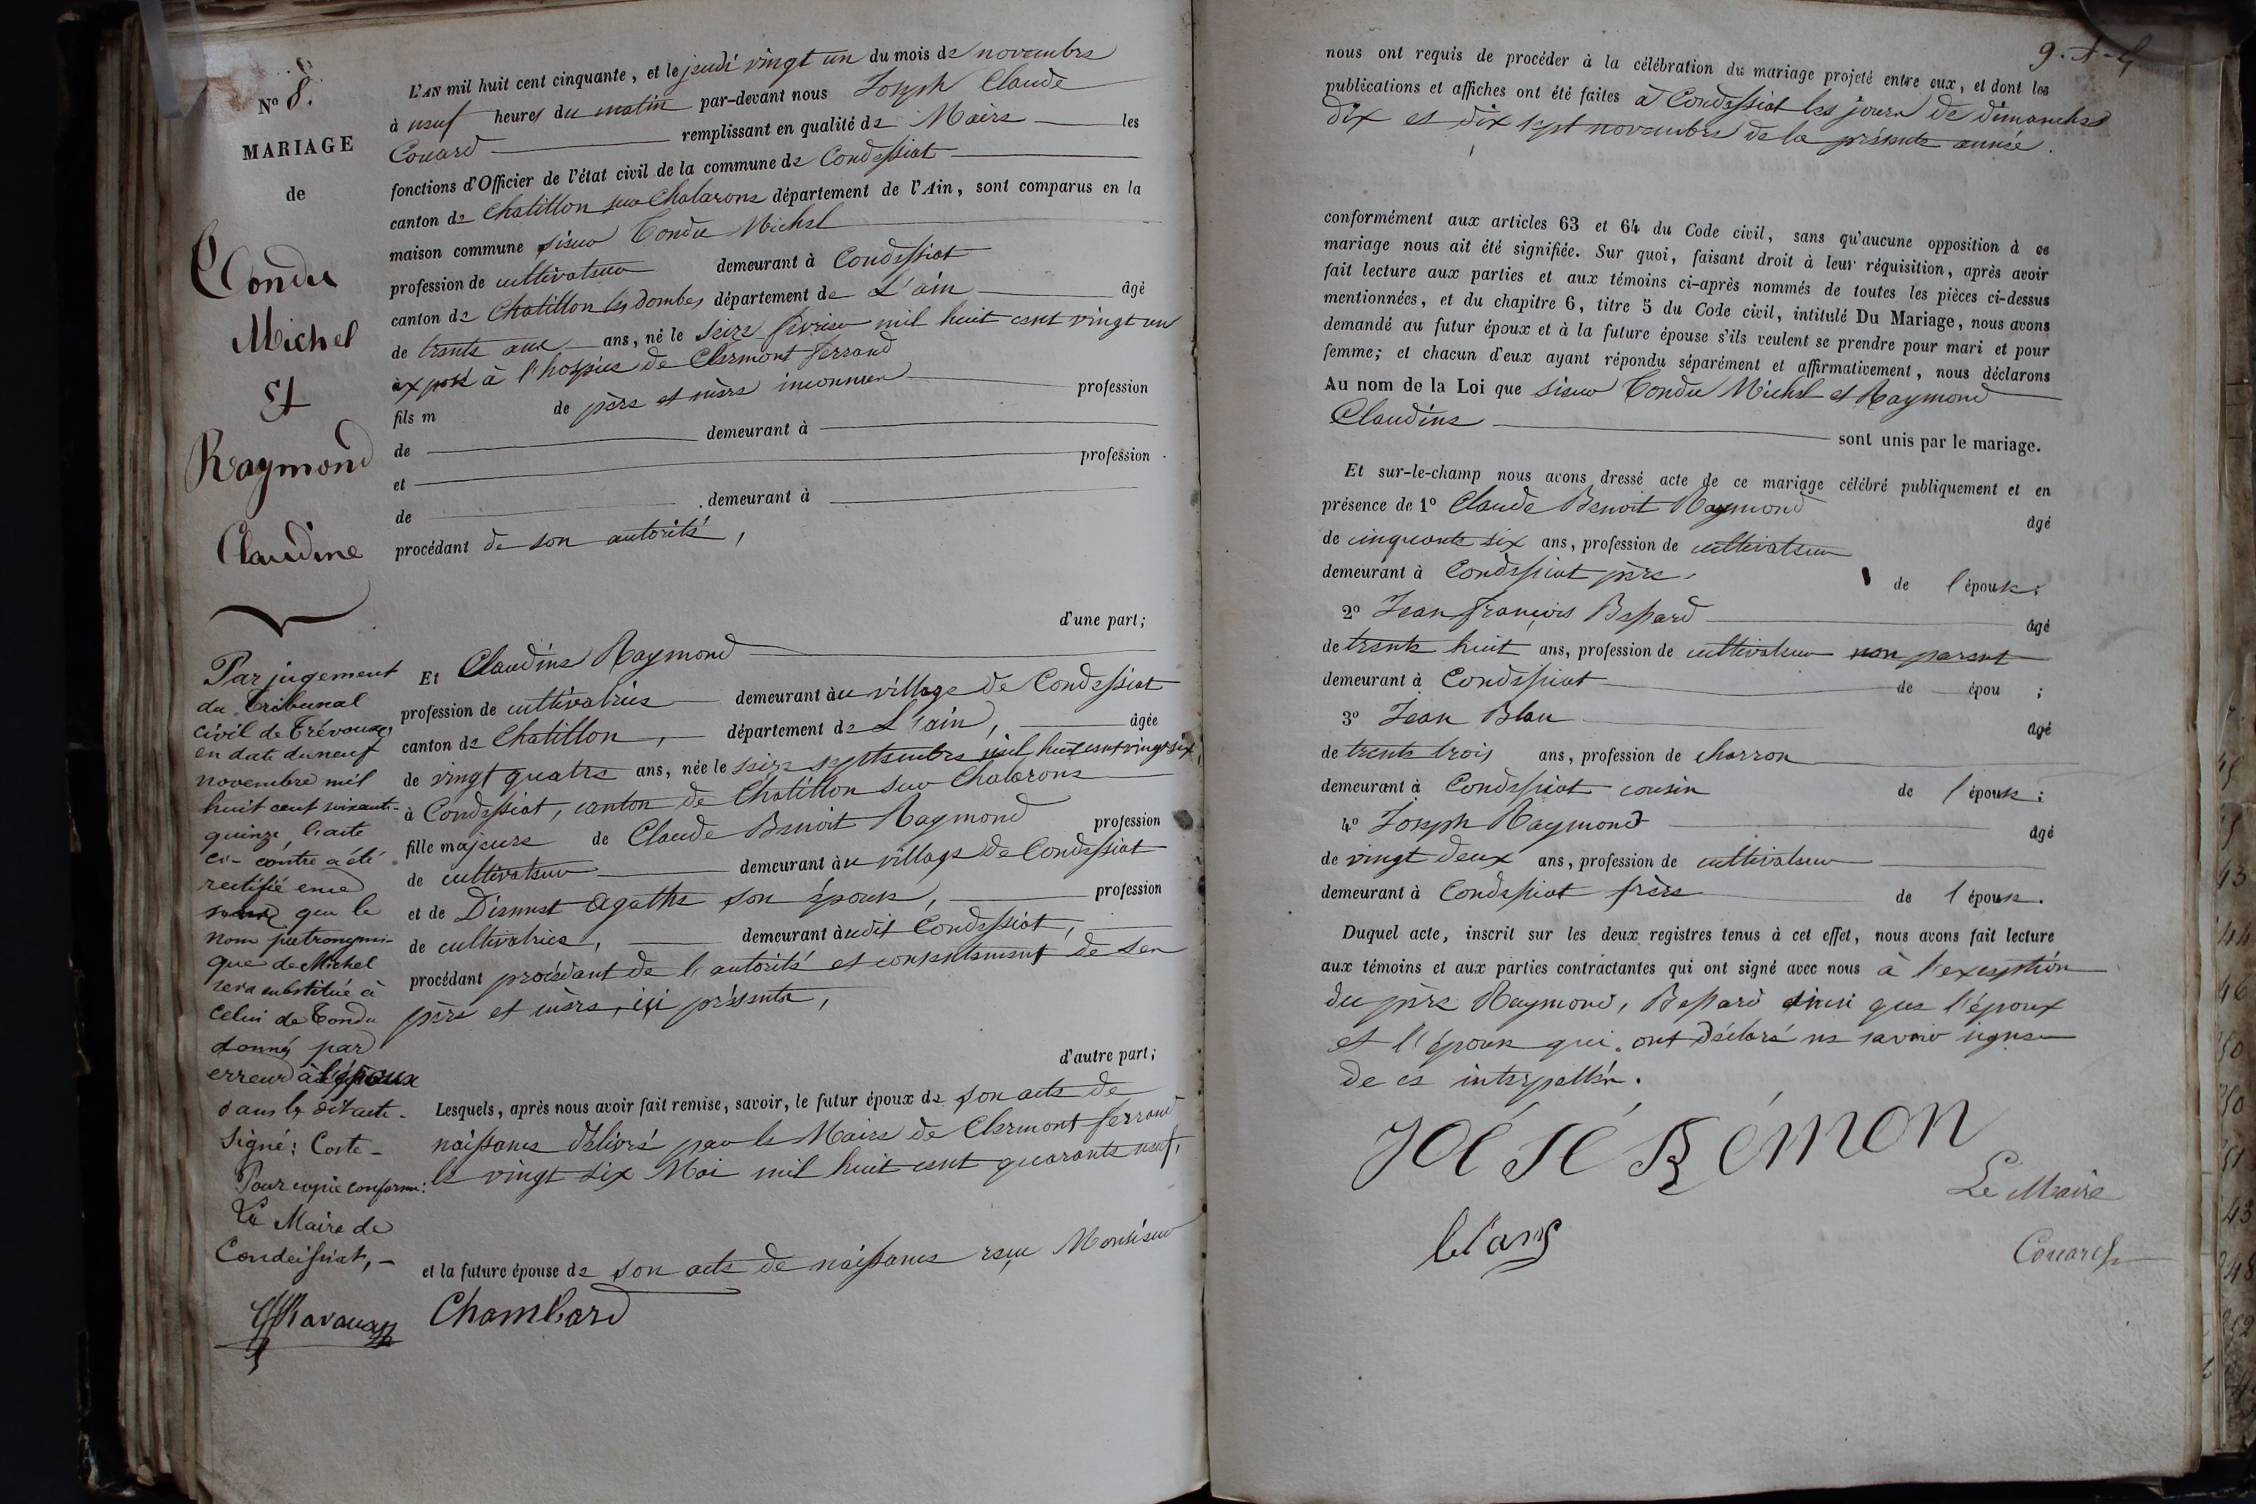 N° 8.
MARIAGE
de
Tondu
Michel
et
Raymond
Claudine
Par jugement
du Tribunal
civil de Trévoux,
en date du neuf
novembre mil
huit cent soixante-
quinze, l'acte
ci-contre a été
rectifié en ce
que le
nom patronymi-
que de Michel
sera substitué à
celui de Tondu
donné par
erreur à l'époux
dans le dit acte.
Signé: Coste -
Pour copie conforme:
Le Maire de
Condeissiat, -
L'AN mil huit cent cinquante, et le jeudi vingt un du mois de novembre
à neuf heures du matin par-devant nous Joseph Claude
Couard remplissant en qualité de Maire les
fonctions d'Officier de l'état civil de la commune de Condessiat
canton de Chatillon sur Chalarone département de l'Ain, sont comparus en la
maison commune sieur Tondu Michel
profession de cultivateur demeurant à Condessiat
canton de Chatillon les dombes département de L'ain âgé
de trente ans, né le seize fevrier mil huit cent vingt un
exposé à l'hospice de Clermont ferrand
fils m de père et mère inconnus profession
de demeurant à
et profession
de demeurant à
procédant de son autorité,
d'une part;
Et Claudine Raymond
profession de cultivatrice demeurant àu village de Condessiat
canton de Chatillon, département de L'ain, âgée
de vingt quatre ans, née le seize septembre mil huit cent vingt six
à Condessiat, canton de Chatillon sur Chalarone
fille majeure de Claude Benoit Raymond profession
de cultivateur demeurant àu village de Condessiat
et de Disnust Agathe son épouse, profession
de cultivatrice, demeurant àudit Condessiat,
procédant procédant de l'autorité et consentement de ses
père et mère, ici présents,
d'autre part;
Lesquels, après nous avoir fait remise, savoir, le futur époux de son acte de
naissance délivré par le Maire de Clermont ferrand
le vingt six Mai mil huit cent quarante neuf,
et la future épouse de son acte de naissance reçu Monsieur
Chambard
nous ont requis de procéder à la célébration du mariage projeté entre eux, et dont les
publications et affiches ont été faites à Condessiat les jours de dimanches
dix et dix sept novembre de la présente année.
conformément aux articles 63 et 64 du Code civil, sans qu'aucune opposition à ce
mariage nous ait été signifiée. Sur quoi, faisant droit à leur réquisition, après avoir
fait lecture aux parties et aux témoins ci-après nommés de toutes les pièces ci-dessus
mentionnées, et du chapitre 6, titre 5 du Code civil, intitulé Du Mariage, nous avons
demandé au futur époux et à la future épouse s'ils veulent se prendre pour mari et pour
femme; et chacun d'eux ayant répondu séparément et affirmativement, nous déclarons
Au nom de la Loi que sieur Tondu Michel et Raymond
Claudine sont unis par le mariage.
Et sur-le-champ nous avons dressé acte de ce mariage célébré publiquement et en
présence de 1° Claude Benoit Raymond âgé
de cinquante six ans, profession de cultivateur
demeurant à Condessiat père de l'épouse;
2° Jean François Bessard âgé
de trente huit ans, profession de cultivateur non parent
demeurant à Condessiat de épou ;
3° Jean Blan âgé
de trente trois ans, profession de charron
demeurant à Condessiat cousin de l'épouse;
4° Joseph Raymond âgé
de vingt deux ans, profession de cultivateur
demeurant à Condessiat frère de l'épouse.
Duquel acte, inscrit sur les deux registres tenus à cet effet, nous avons fait lecture
aux témoins et aux parties contractantes qui ont signé avec nous à l'exception
du père Raymond, Bessard ainsi que l'époux
et l'épouse qui ont déclaré ne savoir signer
de ce interpellés.
Le Maire
Couard